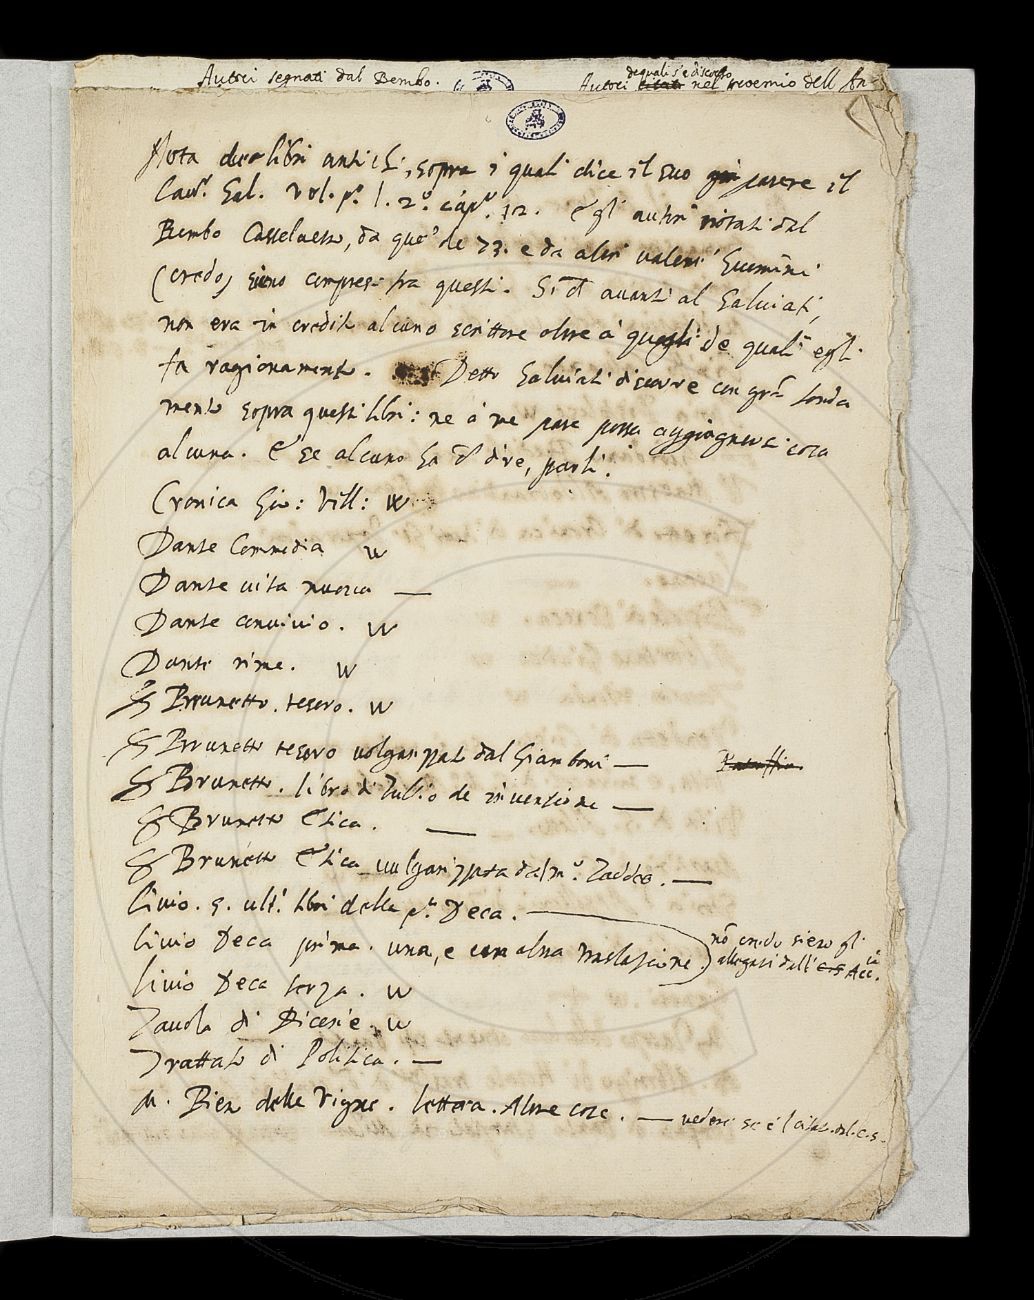 Autori segnati dal Bembo.
de quali s'è discorso
Autori citati nel proemio dell
Nota de libri antichi, sopra i quali dice il suo parere il
Cavr. Sal. Vol. p.º l. 2.º cap.º 12. E gli autori notati dal
Bembo Castelvetro, da que' de 73. e da altri valenti huomini
(credo) sieno compresi tra questi. Sì che avanti al Salviati,
non era in credito alcuno scrittore oltre a' quegli de quali egli
fa ragionamento. Detto Salviati discorre con gra fonda
mento sopra questi libri: ne a' me pare possa aggiugnersi cosa
alcuna. E se alcuno ha che dire, parli.
Cronica Gio: Vill: w
Dante Commedia w
Dante vita nuova —
Dante convivio. w
Dante rime. w
S Brunetto. tesoro. w
S Brunetto tesoro volgarizzato dal Giamboni —
Pataffio
S Brunetto. libro di Tullio de invenzione —
S Brunetto Etica. —
S Brunetto Etica vulgarizzata dal m.º Taddeo. —
Livio. 5. ulti libri della p.ª Deca. —
Livio Deca prima. una, e con altra traslazione.
nō credo sieno gli
allegati dall' Acc.ia
Livio Deca terza. w
Tavola di Dicerie. w
Trattato di Politica. —
M. Pier delle Vigne. lettera. Altre cose. — vedere se è l citat. dal. c. s.